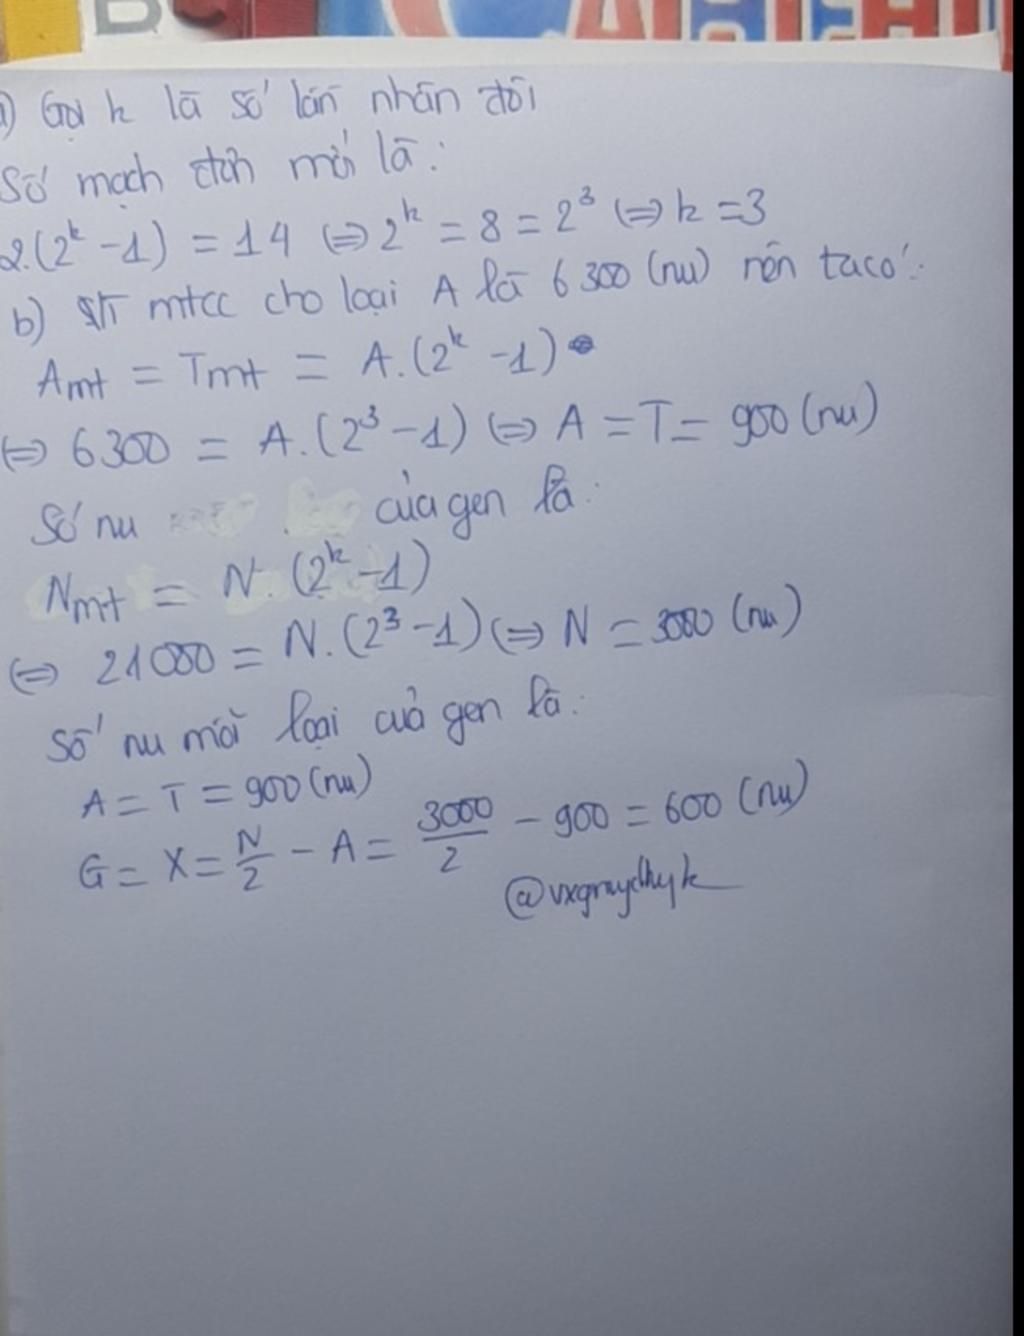 a) Gọi k là số lần nhân đôi
Số mạch đơn mới là:
2.(2^k - 1) = 14 ⇔ 2^k = 8 = 2^3 ⇔ k = 3
b) mtcc cho loại A là 6300 (nu) nên ta có:
Amt = Tmt = A.(2^k - 1)
⇔ 6300 = A.(2^3 - 1) ⇔ A = T = 900 (nu)
Số nu của gen là:
Nmt = N.(2^k - 1)
⇔ 21000 = N.(2^3 - 1) ⇔ N = 3000 (nu)
Số nu mỗi loại của gen là:
A = T = 900 (nu)
G = X = N/2 - A = 3000/2 - 900 = 600 (nu)